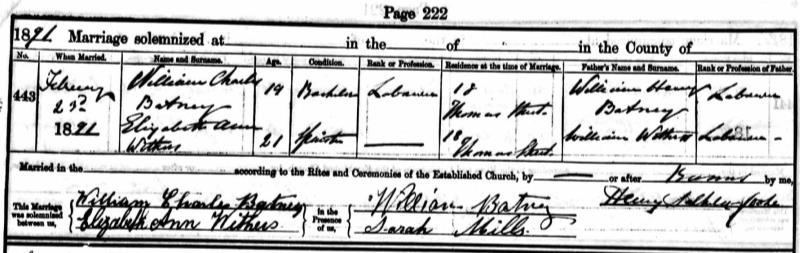 Page 222
1891 Marriage solemnized at in the of in the County of
No. When Married. Name and Surname. Age. Condition. Rank or Profession. Residence at the time of Marriage. Father's Name and Surname. Rank or Profession of Father.
443 William Charles 19 Bachelor Labourer 18 William Henry Labourer
Batney Thomas Street Batney
1891 Elizabeth Ann 21 Spinster 18 William Withers Labourer
Withers Thomas Street
Married in the according to the Rites and Ceremonies of the Established Church, by or after Banns by me,
This Marriage was solemnized between us,
William Charles Batney
Elizabeth Ann Withers
In the Presence of us,
William Batney
Sarah Mills
Henry